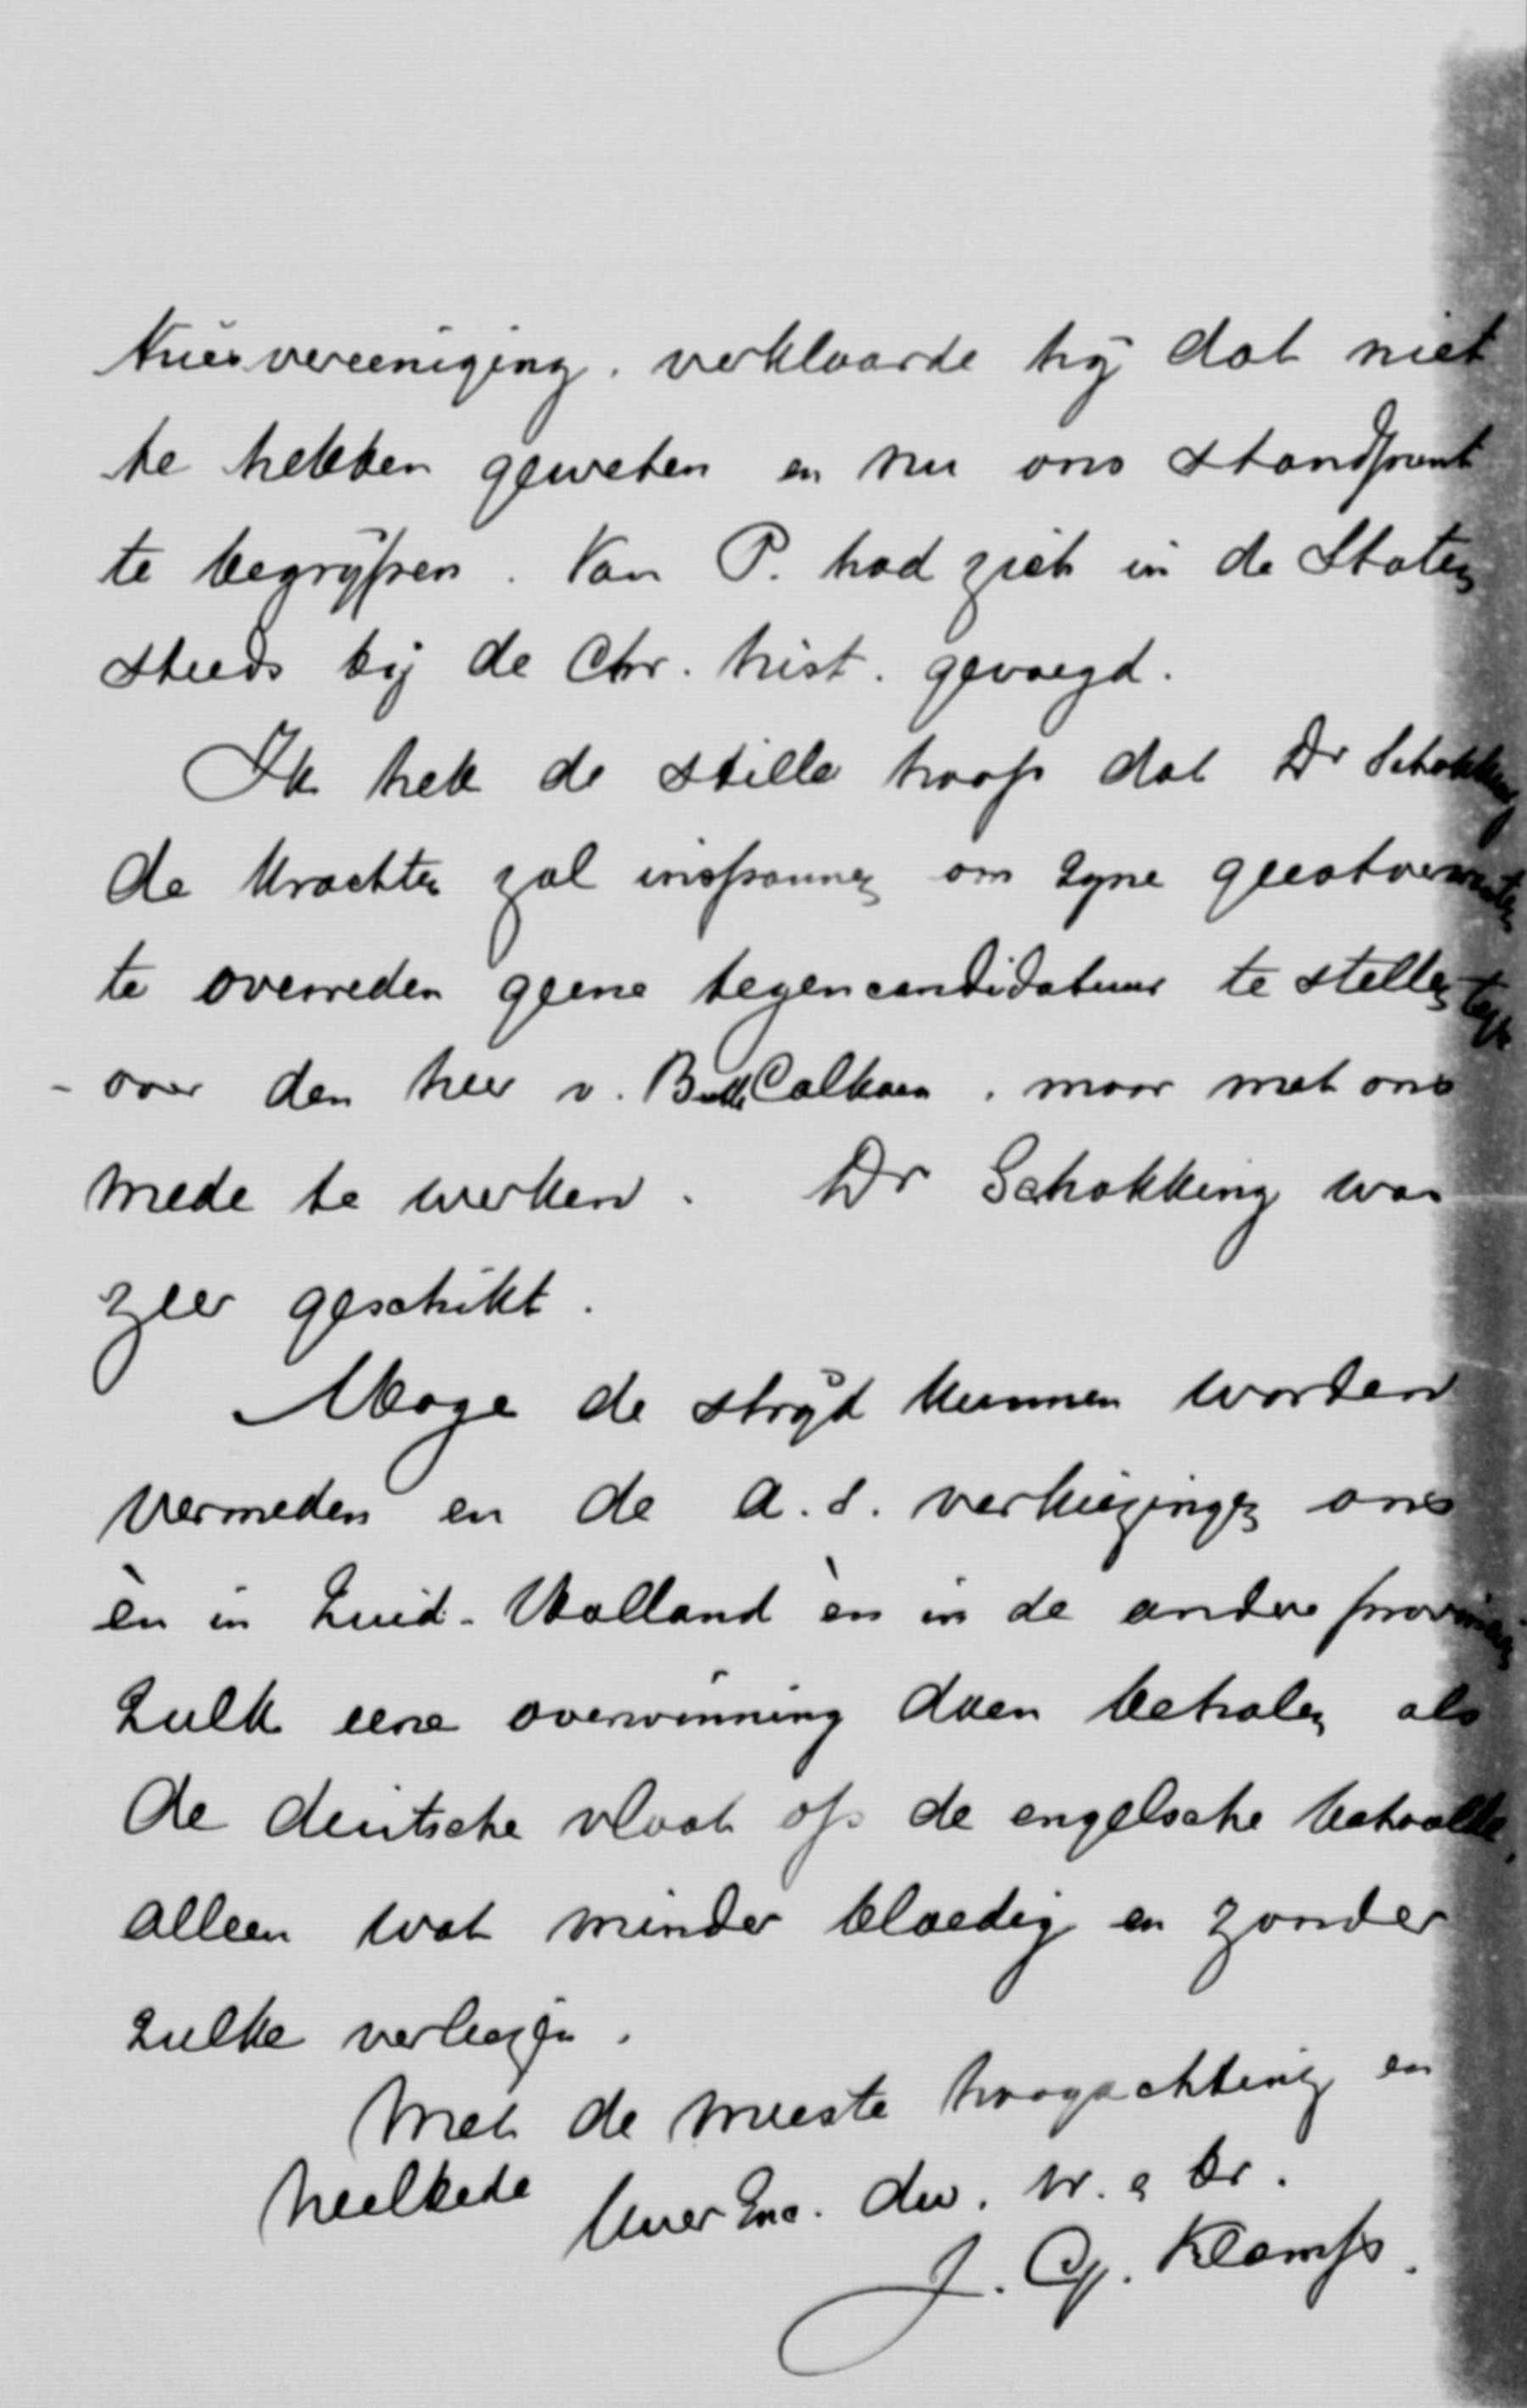 Kiesvereeniging. verklaarde hij dat niet
te hebben geweten en nu ons standpunt
te begrijpen. Van P. had zich in de Staten
steeds bij de Chr. hist. gevoegd.
Ik heb de stille hoop dat Dr Schokking
de krachten zal inspannen om zijne geestverwanten
te overreden geene tegencandidatuur te stellen tegen
- over den heer v. Calkoen, maar met ons
mede te werken. Dr Schokking was
zeer geschikt.
Moge de strijd kunnen worden
vermeden en de a.s. verkiezingen ons
èn in Zuid-Holland èn in de andere provincies
zulk eene overwinning doen behalen als
de deutsche vloot op de engelsche behaalde,
alleen wat minder bloedig en zonder
zulke verliezen.
Met de meeste hoogachting en
heilbede
Uwer Exc. dw. dr. & br.
J. Cp. Klomp.